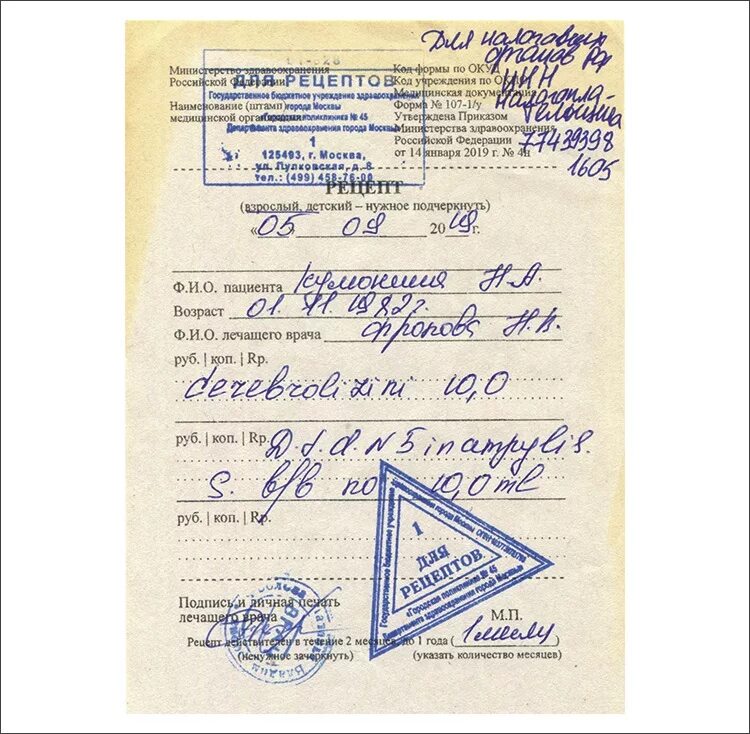 Для налоговых
органов РФ
ИНН
налогопла-
тельщика
77439398
1605
Министерство здравоохранения
Российской Федерации
Наименование (штамп)
медицинской организации
ДЛЯ РЕЦЕПТОВ
Государственное бюджетное учреждение здравоохранения
города Москвы
«Городская поликлиника № 45
Департамента здравоохранения города Москвы»
1
125493, г. Москва,
ул. Пулковская, д. 8
тел.: (499) 458-76-00
Код формы по ОКУД
Код учреждения по
Медицинская документация
Форма № 107-1/у
Утверждена Приказом
Министерства здравоохранения
Российской Федерации
от 14 января 2019 г. № 4н
РЕЦЕПТ
(взрослый, детский – нужное подчеркнуть)
«05 09 2019г.
Ф.И.О. пациента Н.А.
Возраст 01.11.1982г.
Ф.И.О. лечащего врача Фролова Н.В.
руб. | коп. | Rp.
Cerebrolizini 10,0
руб. | коп. | Rp. D.t.d. N 5 in ampylis.
S. в/в по 10,0 ml
руб. | коп. | Rp.
1
ДЛЯ
РЕЦЕПТОВ
Государственное бюджетное учреждение здравоохранения города Москвы
«Городская поликлиника № 45
Департамента здравоохранения города Москвы»
Подпись и личная печать
лечащего врача
М.П.
Рецепт действителен в течение 2 месяцев, до 1 года (1 месяц)
(ненужное зачеркнуть) (указать количество месяцев)